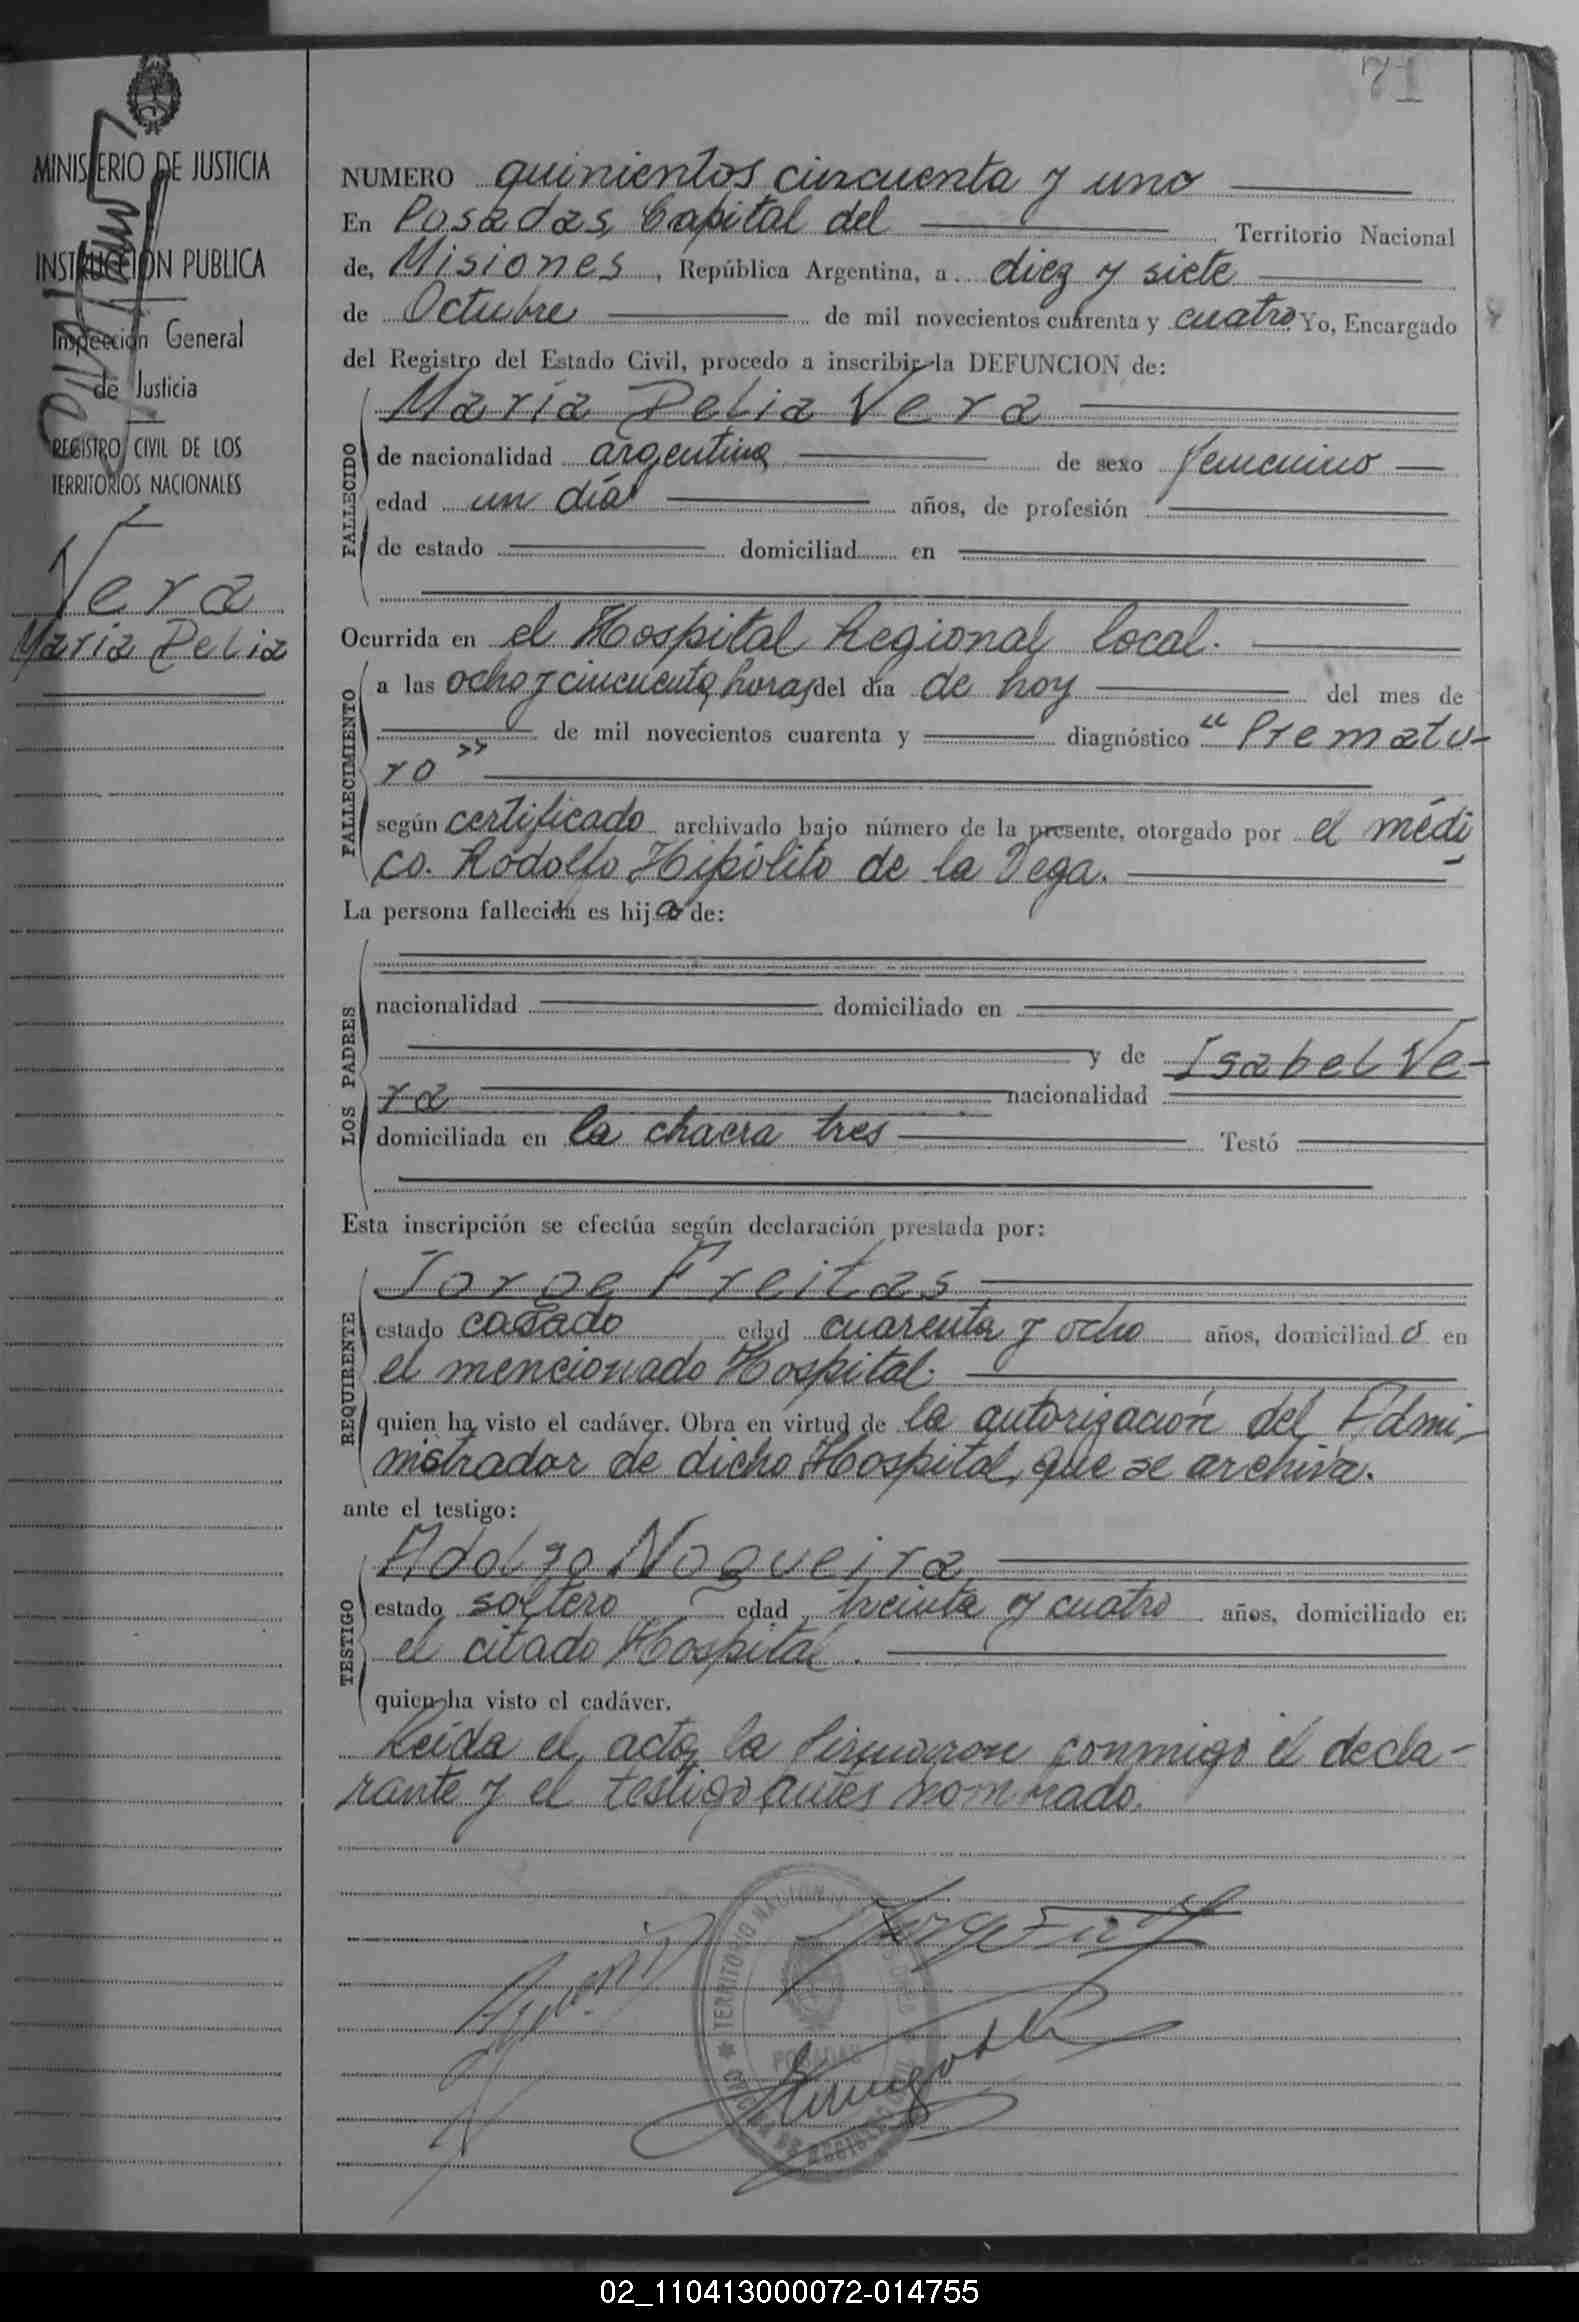 71
MINISTERIO DE JUSTICIA
INSTRUCCION PUBLICA
Inspección General
de Justicia
REGISTRO CIVIL DE LOS
TERRITORIOS NACIONALES
Vera
María Delia
NUMERO quinientos cincuenta y uno
En Posadas, Capital del Territorio Nacional
de, Misiones, República Argentina, a diez y siete
de Octubre de mil novecientos cuarenta y cuatro Yo, Encargado
del Registro del Estado Civil, procedo a inscribir la DEFUNCION de:
FALLECIDO
María Delia Vera
de nacionalidad argentina de sexo femenino
edad un día años, de profesión
de estado domiciliad en
Ocurrida en el Hospital Regional local.
FALLECIMIENTO
a las ocho y cincuenta horas, del día de hoy del mes de
de mil novecientos cuarenta y diagnóstico "Prematu-
ro"
según certificado archivado bajo número de la presente, otorgado por el médi
co. Rodolfo Hipólito de la Vega.
La persona fallecida es hija de:
LOS PADRES
nacionalidad domiciliado en
y de Isabel Ve-
ra nacionalidad
domiciliada en la chacra tres Testó
Esta inscripción se efectúa según declaración prestada por:
REQUIRENTE
Jorge Freitas
estado casado edad cuarenta y ocho años, domiciliado en
el mencionado Hospital.
quien ha visto el cadáver. Obra en virtud de la autorización del Admi-
nistrador de dicho Hospital, que se archiva.
ante el testigo:
TESTIGO
Adolfo Nogueira
estado soltero edad treinta y cuatro años, domiciliado en
el citado Hospital.
quien ha visto el cadáver.
Leída el acta, la firmaron conmigo el decla-
rante y el testigo antes nombrado.
TERRITORIO NACIONAL
POSADAS
02_110413000072-014755